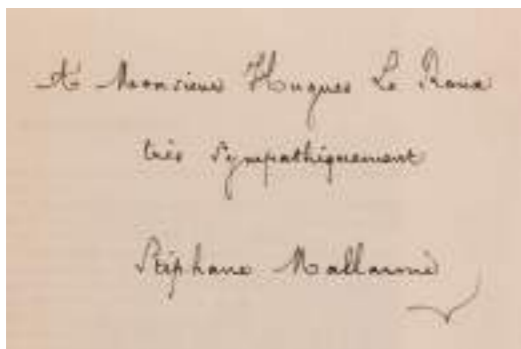 A Monsieur Hugues Le Roux
très sympathiquement
Stéphane Mallarmé